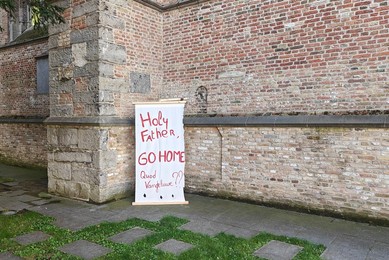 Holy
Father,
GO HOME
Quod
Vangelaur??